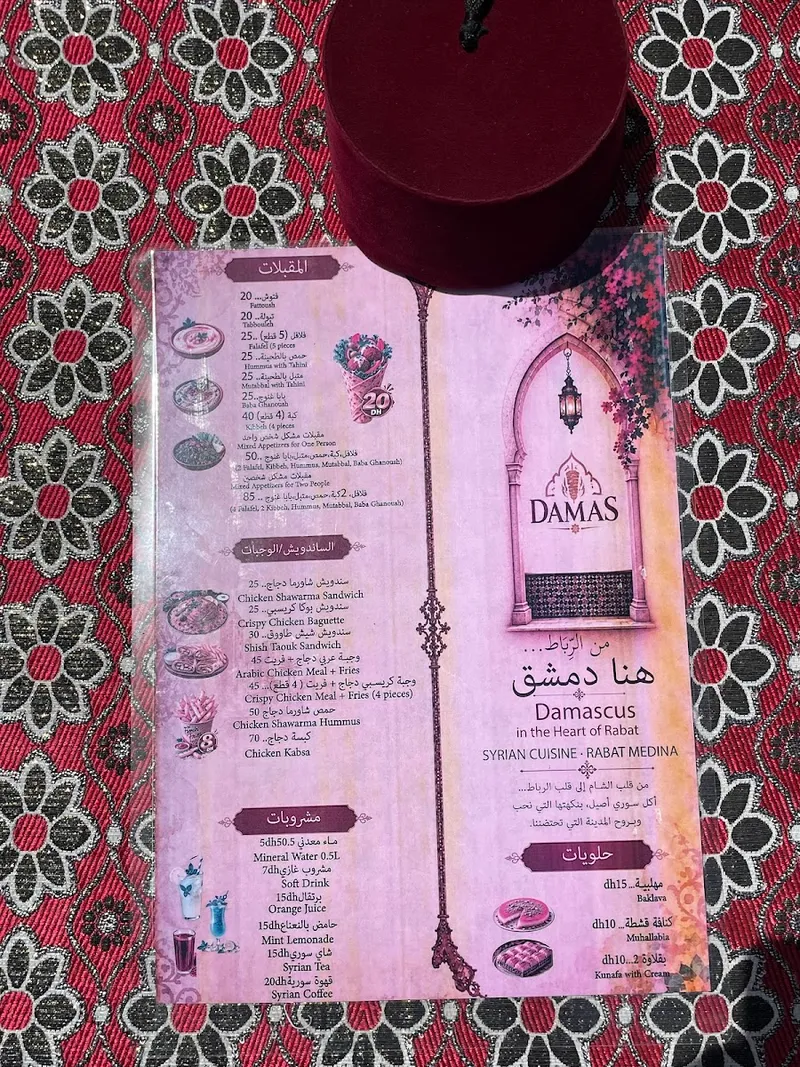 المقبلات
فتوش... 20
Fattoush
تبولة.. 20
Tabbouleh
فلافل (5 قطع) ..25
Falafel (5 pieces
حمص بالطحينة.. 25
Hummus with Tahini
متبل بالطحينة.. 25
Mutabbal with Tahini
بابا غنوج..25
Baba Ghanoush
كبة (4 قطع) 40
Kibbeh (4 pieces
مقبلات مشكل شخص واحد
Mixed Appetizers for One Person
فلافل،كبة،حمص،متبل،بابا غنوج ..50
Falafel, Kibbeh, Hummus, Mutabbal, Baba Ghanoush)
مقبلات مشكل شخصين
Mixed Appetizers for Two People
فلافل، 2كبة،حمص،متبل،بابا غنوج .. 85
(4 Falafel, 2 Kibbeh, Hummus, Mutabbal, Baba Ghanoush)
20
DH
الساندويش/الوجبات
سندويش شاورما دجاج.. 25
Chicken Shawarma Sandwich
سندويش بوكا كريسبي.. 25
Crispy Chicken Baguette
سندويش شيش طاووق.. 30
Shish Taouk Sandwich
وجبة عربي دجاج + فريت 45
Arabic Chicken Meal + Fries
وجبة كريسبي دجاج + فريت ( 4 قطع)... 45
Crispy Chicken Meal + Fries (4 pieces)
حمص شاورما دجاج 50
Chicken Shawarma Hummus
كبسة دجاج.. 70
Chicken Kabsa
مشروبات
ماء معدني 5dh50.5
Mineral Water 0.5L
مشروب غازي7dh
Soft Drink
برتقال15dh
Orange Juice
حامض بالنعناع15dh
Mint Lemonade
شاي سوري15dh
Syrian Tea
قهوة سورية20dh
Syrian Coffee
DAMAS
من الرِّباط...
هنا دمشق
Damascus
in the Heart of Rabat
SYRIAN CUISINE · RABAT MEDINA
من قلب الشام إلى قلب الرباط...
أكل سوري أصيل، بنكهتها التي نحب
وبروح المدينة التي تحتضننا.
حلويات
مهلبية...15dh
Baklava
كنافة قشطة... 10dh
Muhallabia
بقلاوة 2...10dh
Kunafa with Cream